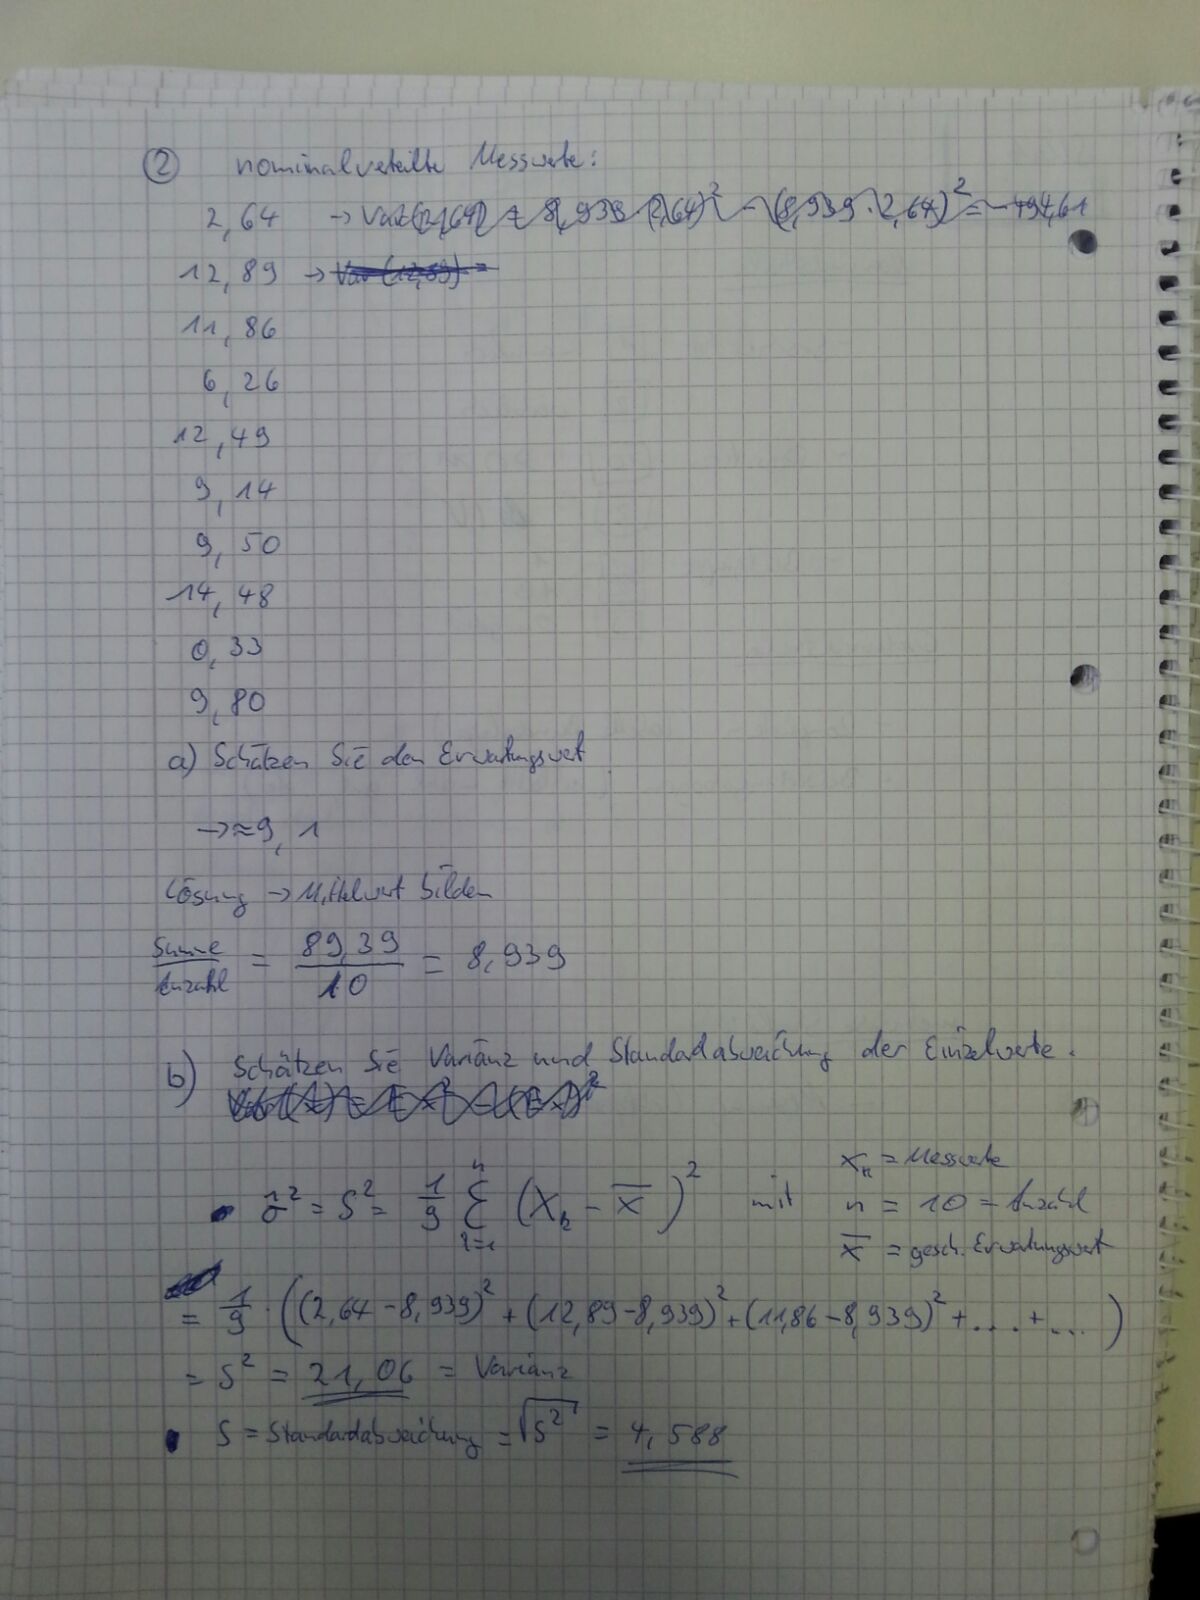 ② nominalverteilte Messwerte:
2,64 → Var(2,64) = 8,939·(2,64)² - (8,939·2,64)² = -494,61
12,89 → Var(12,89) =
11,86
6,26
12,49
9,14
9,50
14,48
0,33
9,80
a) Schätzen Sie den Erwartungswert
→ ≈ 9,1
Lösung → Mittelwert bilden
Summe/Anzahl = 89,39/10 = 8,939
b) Schätzen Sie Varianz und Standardabweichung der Einzelwerte.
x_k = Messwerte
• σ̂² = S² = 1/9 Σ (x_k - x̄)² mit n = 10 = Anzahl
x̄ = gesch. Erwartungswert
= 1/9 · ((2,64 - 8,939)² + (12,89 - 8,939)² + (11,86 - 8,939)² + ... + ...)
= S² = 21,06 = Varianz
• S = Standardabweichung = √S² = 4,588